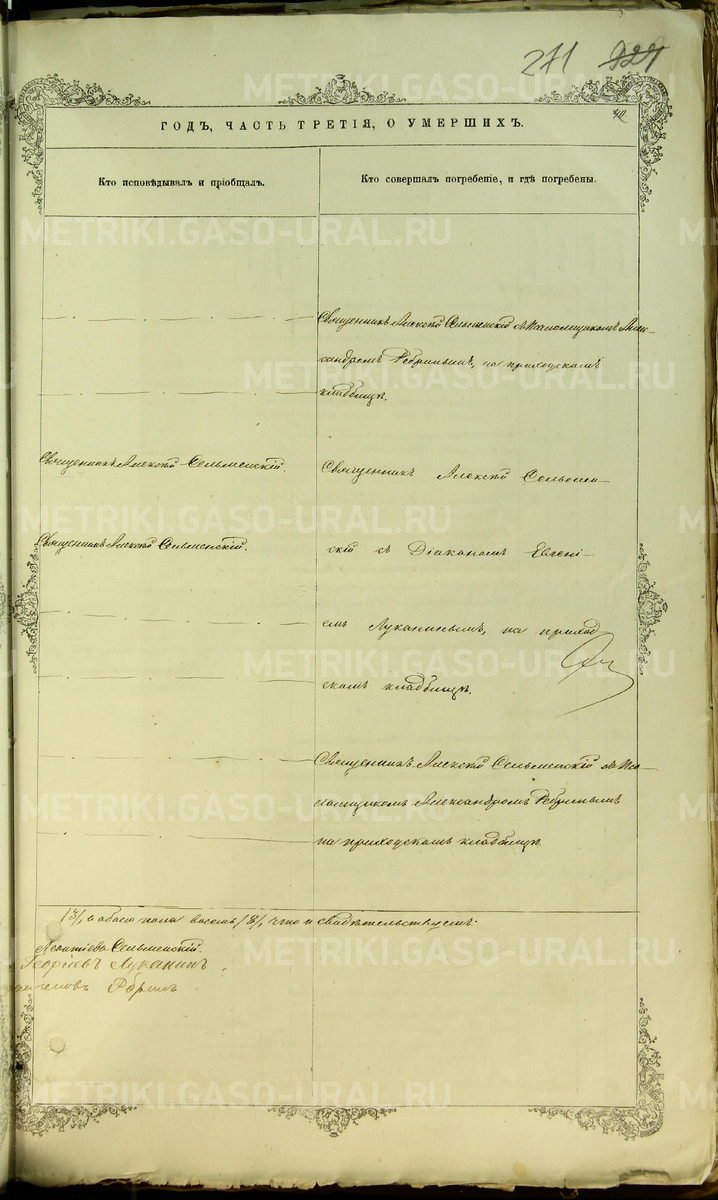 271 924
ГОДЪ, ЧАСТЬ ТРЕТІЯ, О УМЕРШИХЪ.
Кто исповѣдывалъ и пріобщалъ.
Кто совершалъ погребеніе, и гдѣ погребены.
Священникъ Алексѣй Сельменскій съ Псаломщикомъ Алек-
сандромъ Ребринымъ, на приходскомъ
кладбищѣ.
Священникъ Алексѣй Сельменскій.
Священникъ Алексѣй Сельмен-
Священникъ Алексѣй Сельменскій.
скій съ Діакономъ Евгені-
емъ Луканинымъ, на приход
скомъ кладбищѣ.
Священникъ Алексѣй Сельменскій съ Пса-
ломщикомъ Александромъ Ребринымъ
на приходскомъ кладбищѣ.
/3/, а обоего пола восемь /8/, что и свидѣтельствуемъ:
Сельменскій.
Георгіевъ Луканинъ
Ребринъ
METRIKI.GASO-URAL.RU